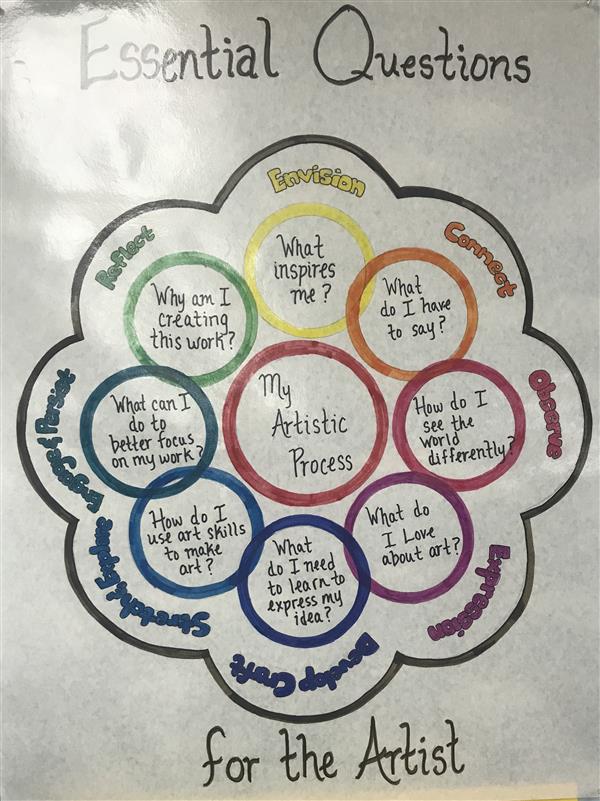 Essential Questions
Envision
What
inspires
me?
Connect
What
do I have
to say?
Observe
How do I
see the
world
differently?
Expression
What do
I Love
about art?
Develop Craft
What
do I need
to learn to
express my
idea?
Stretch & Explore
How do I
use art skills
to make
art?
Engage & Persist
What can I
do to
better focus
on my work?
Reflect
Why am I
creating
this work?
My
Artistic
Process
for the Artist